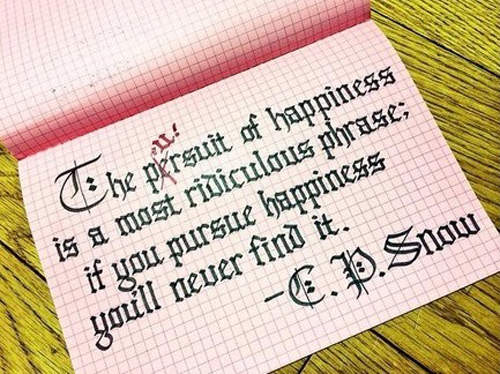 The persuit of happiness
u!
is a most ridiculous phrase;
if you pursue happiness
you'll never find it.
-C.P. Snow